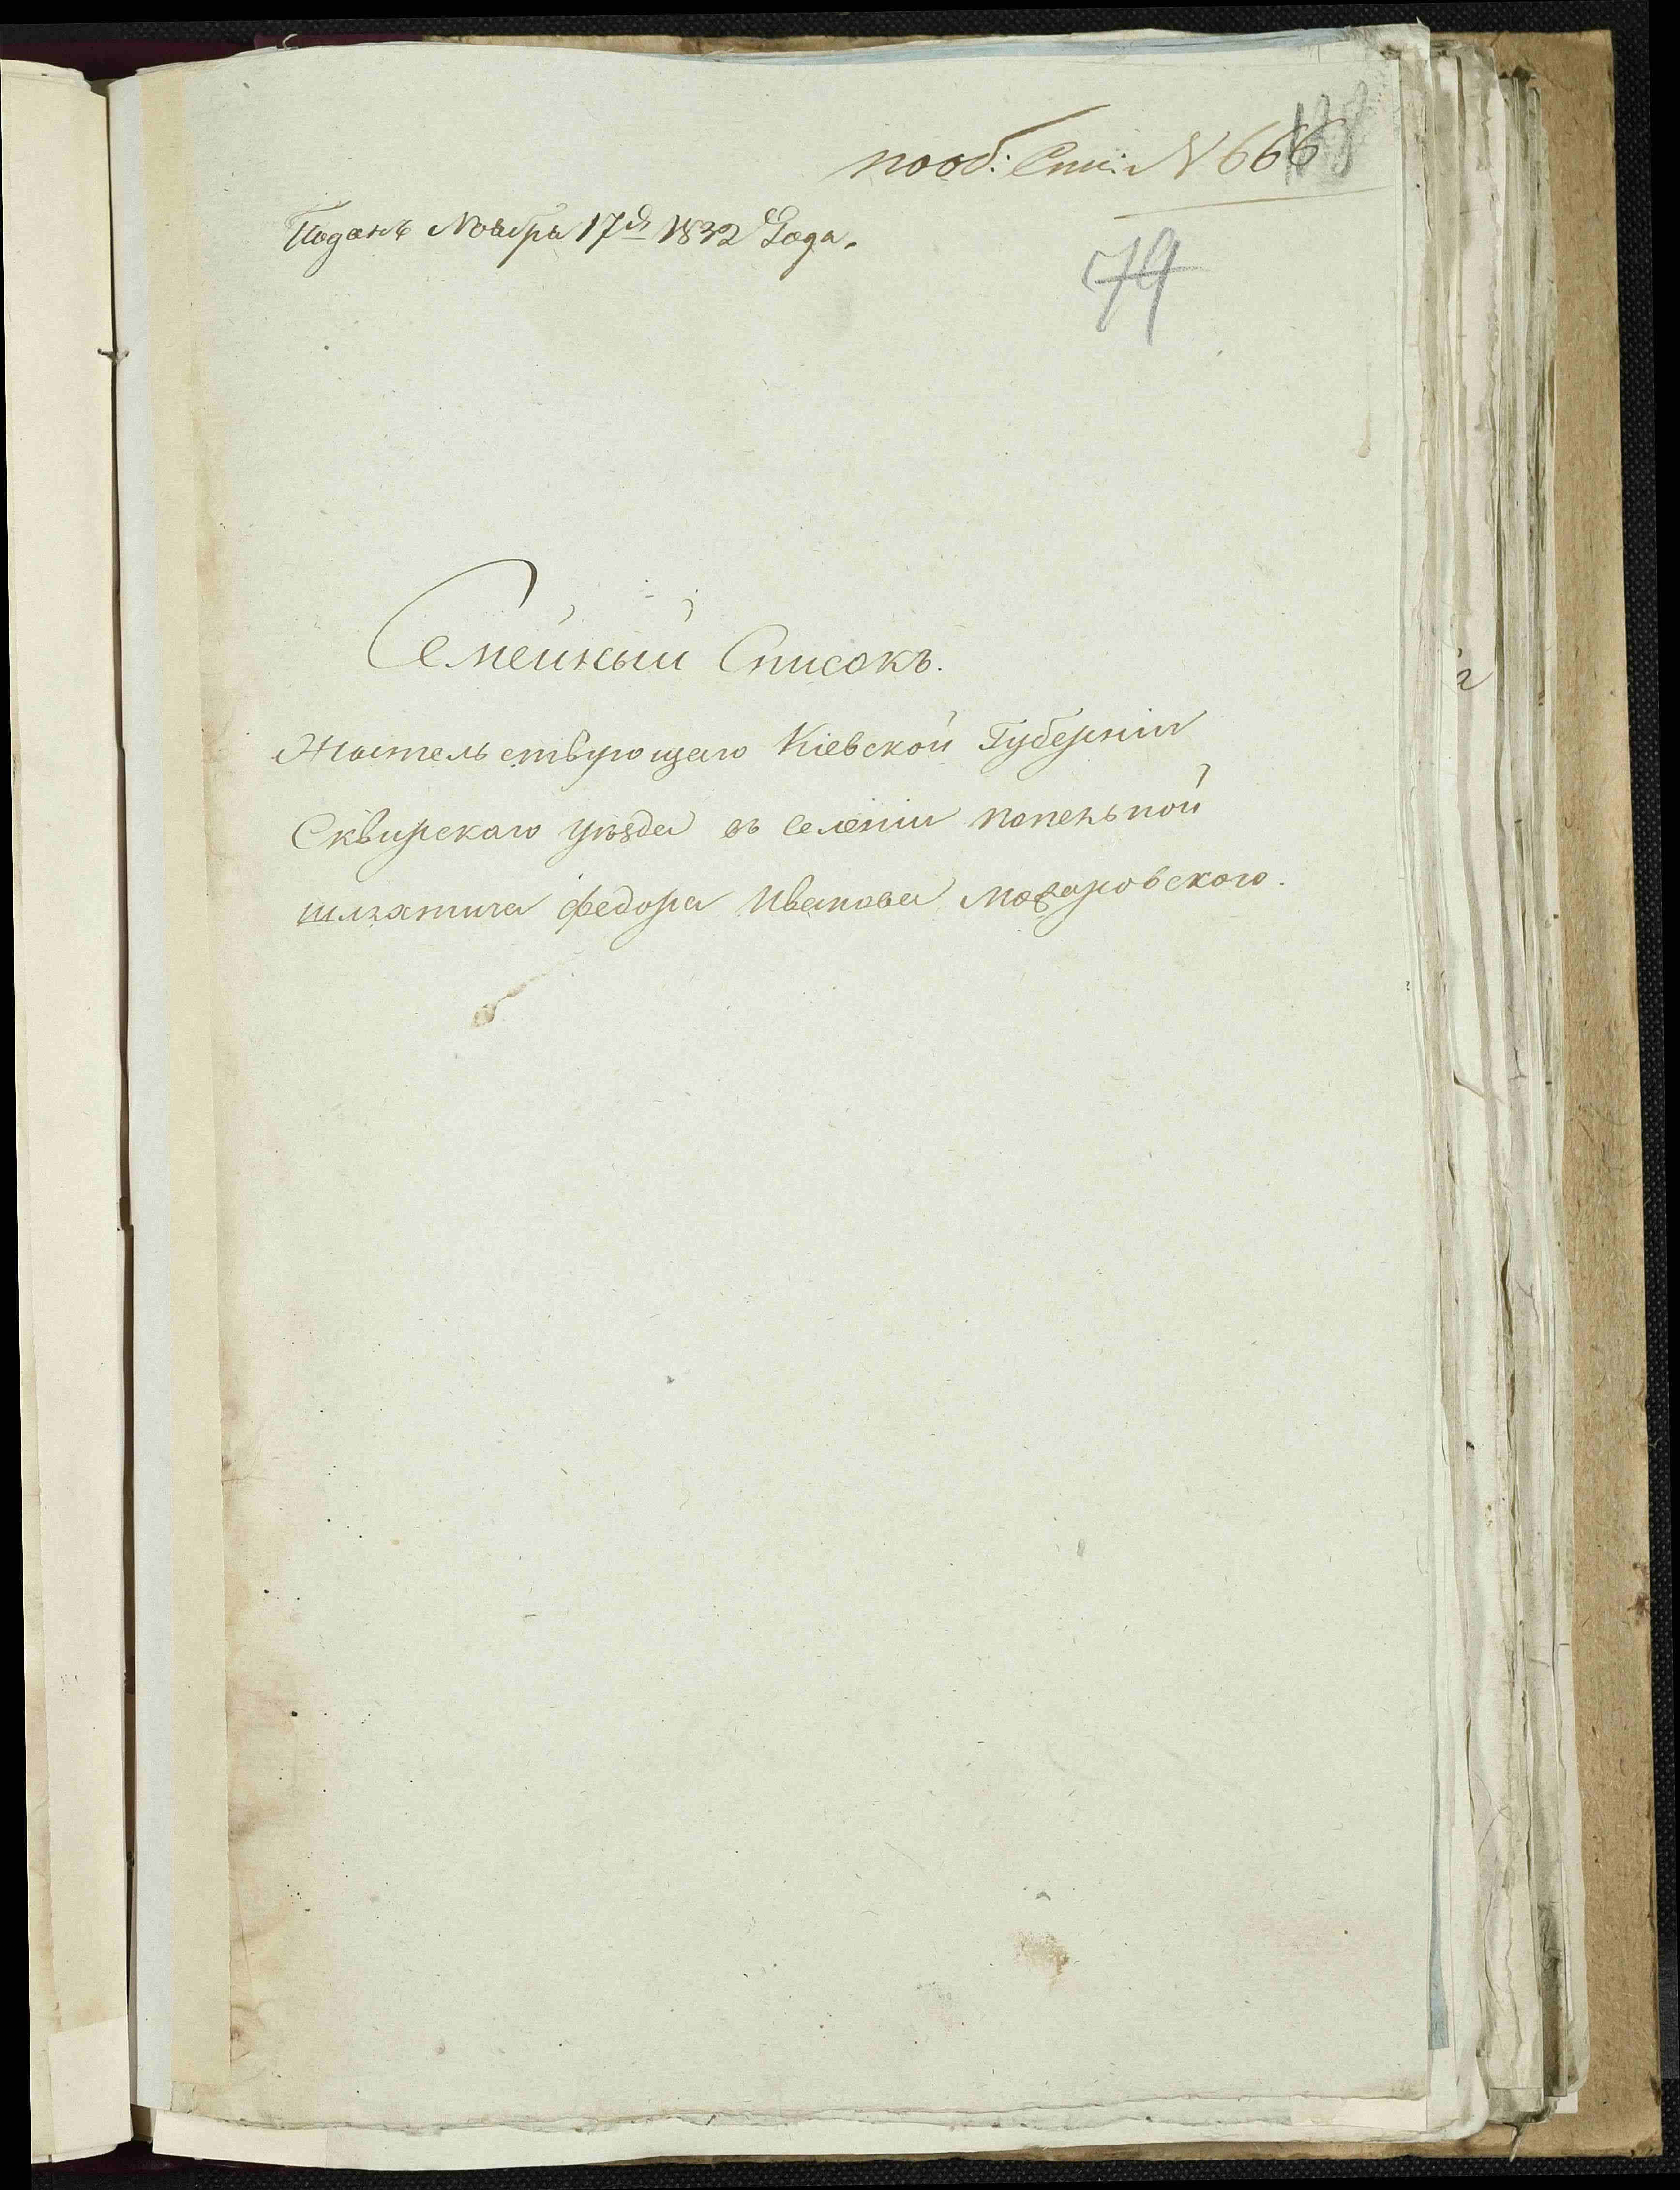 пооб: Спи: N 666
Поданъ Ноября 17го 1832 Года.
79
Семейный Списокъ.
Жительствующаго Кіевской Губерніи
Сквирскаго уѣзда въ селеніи попельной
шляхтича федора Иванова